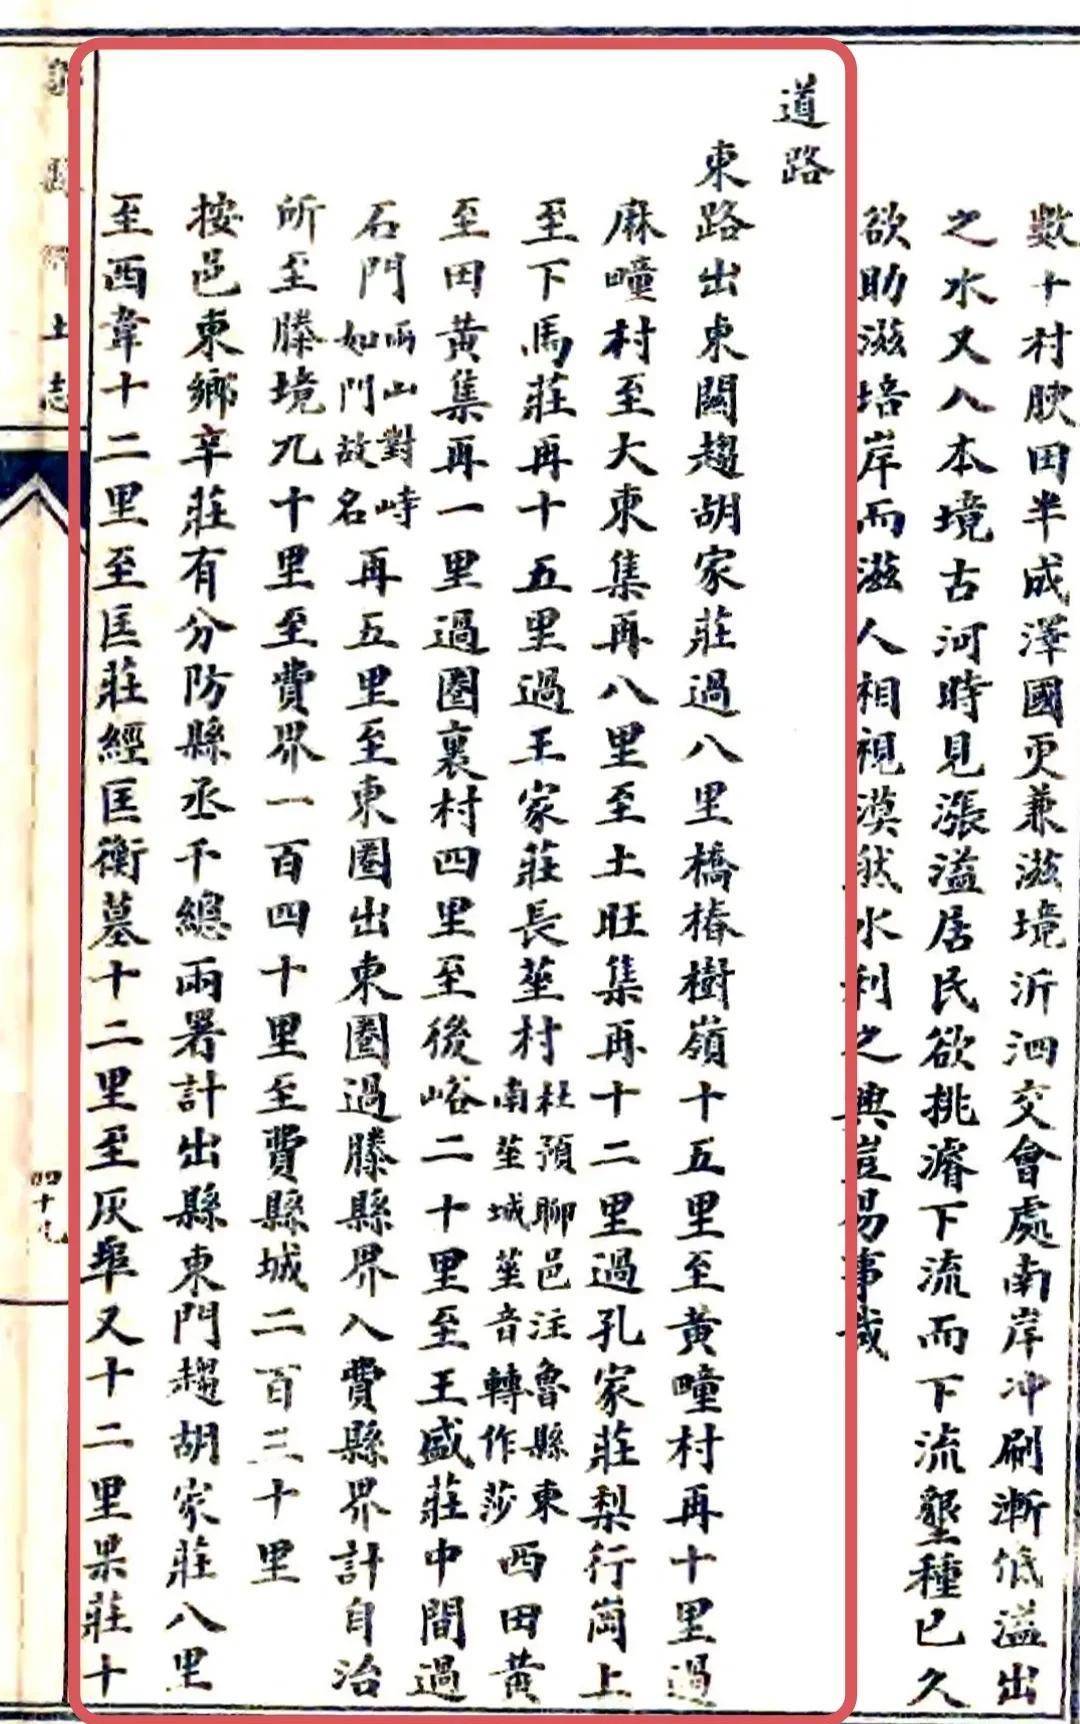 數十村腴田半成澤國更兼滋境沂泗交會處南岸冲刷漸低溢出
之水又入本境古河時見漲溢居民欲挑濬下流而下流墾種已久
欲助滋培岸而滋人相視漠然水利之興豈易事哉
道路
東路出東關趨胡家莊過八里橋椿樹嶺十五里至黃疃村再十里過
麻疃村至大東集再八里至土旺集再十二里過孔家莊梨行崗上
至下馬莊再十五里過王家莊長莝村杜預聊邑注魯縣東南莝城莝音轉作莎西田黃
至田黃集再一里過圈裏村四里至後峪二十里至王盛莊中間過
石門兩山對峙如門故名再五里至東圈出東圈過滕縣界入費縣界計自治
所至滕境九十里至費界一百四十里至費縣城二百三十里
按邑東鄉辛莊有分防縣丞千總兩署計出縣東門趨胡家莊八里
至西韋十二里至匡莊經匡衡墓十二里至灰埠又十二里果莊十
鄉土志
四十九